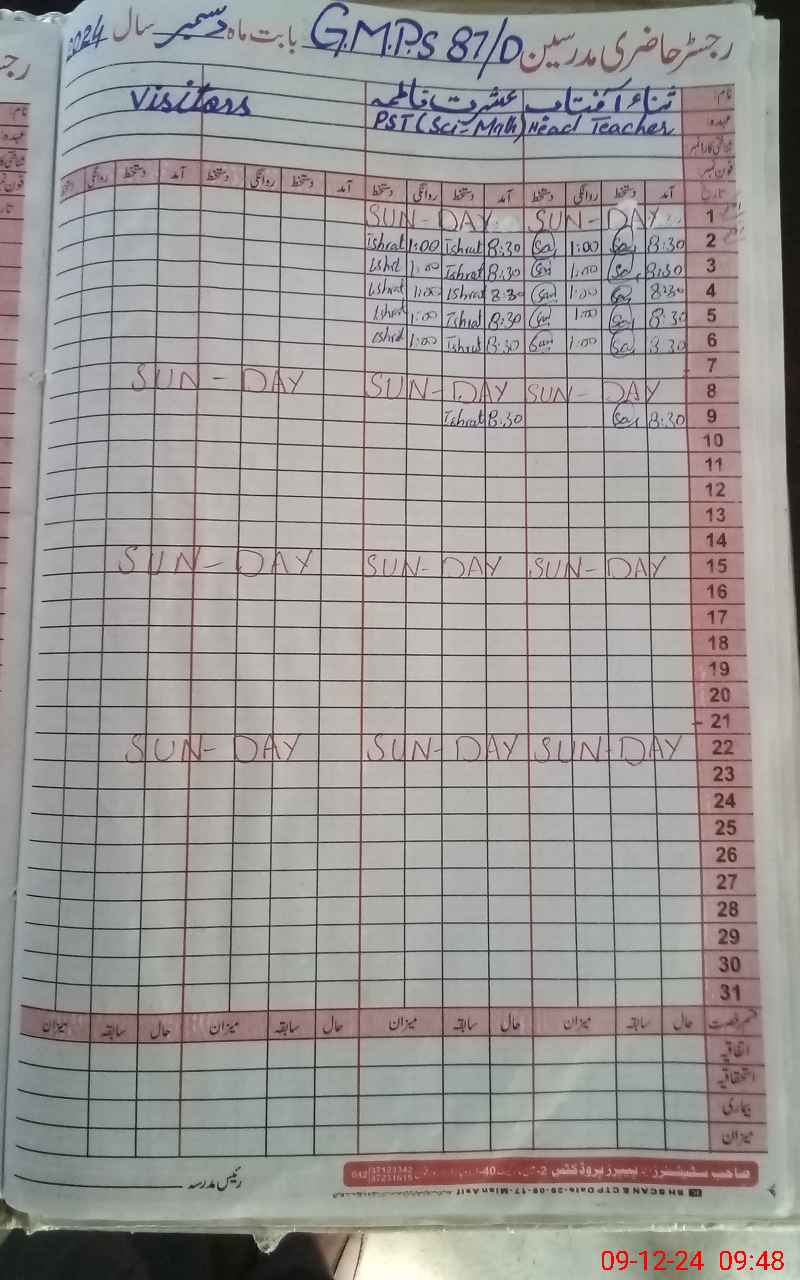 رجسٹر حاضری مدرسین G.M.P.S 87/D بابت ماہ دسمبر سال 2024
نام: ثناء آفتاب عشرت فاطمہ Visitors
عہدہ: Head Teacher PST (Sci-Math)
شناختی کارڈ نمبر
فون نمبر
تاریخ آمد دستخط روانگی دستخط آمد دستخط روانگی دستخط آمد دستخط روانگی دستخط آمد دستخط روانگی دستخط
1 SUN-DAY SUN-DAY
2 8:30 Sa 1:00 Sa 8:30 Ishrat 1:00 Ishrat
3 8:30 Sa 1:00 San 8:30 Ishrat 1:00 Ishrt
4 8:30 Sa 1:00 San 8:30 Ishrat 1:00 Ishrat
5 8:30 Sa 1:00 San 8:30 Ishrat 1:00 Ishrat
6 8:30 Sa 1:00 San 8:30 Ishrat 1:00 Ishrt
7
8 SUN-DAY SUN-DAY SUN-DAY
9 8:30 Sa 8:30 Ishrat
10
11
12
13
14
15 SUN-DAY SUN-DAY SUN-DAY
16
17
18
19
20
21
22 SUN-DAY SUN-DAY SUN-DAY
23
24
25
26
27
28
29
30
31
قسم رخصت حال سابقہ میزان حال سابقہ میزان حال سابقہ میزان حال سابقہ میزان
اتفاقیہ
استحقاقیہ
بیماری
میزان
رئیس مدرسہ
09-12-24 09:48